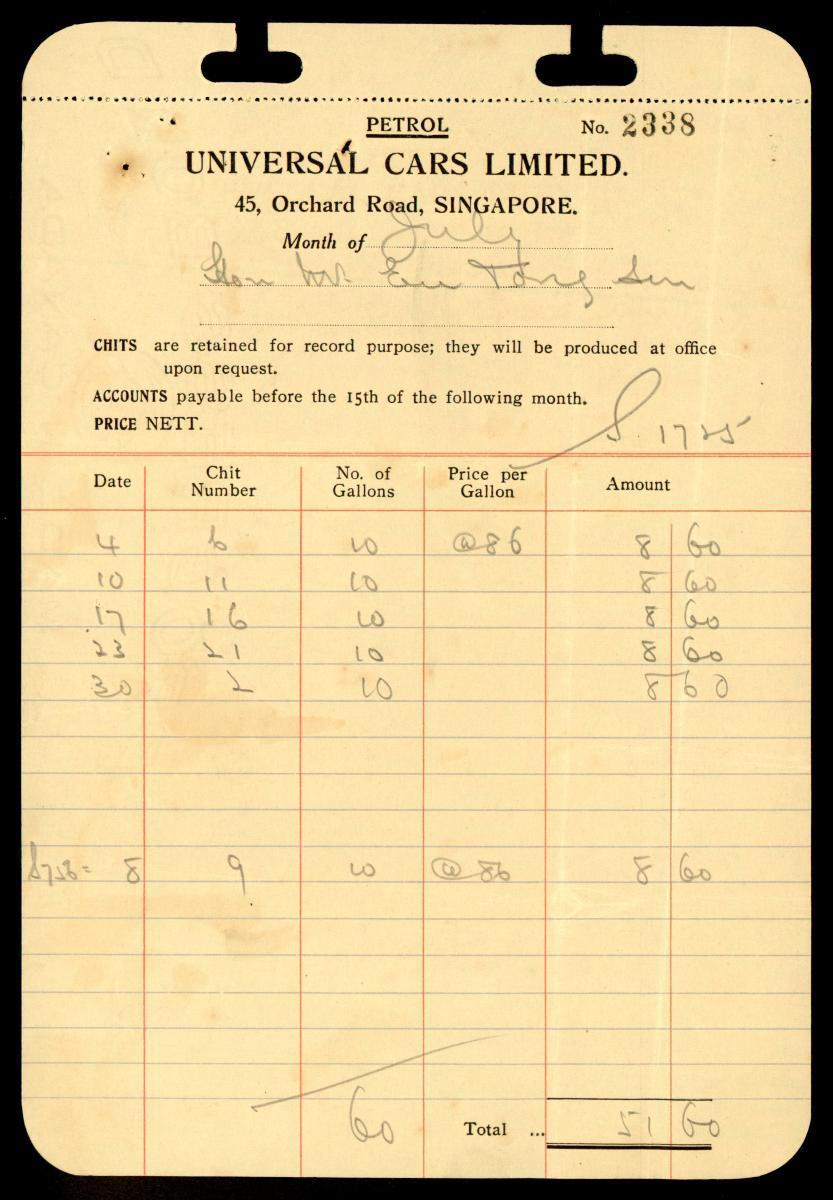 PETROL
No. 2338
UNIVERSAL CARS LIMITED.
45, Orchard Road, SINGAPORE.
Month of July
Hon Mr. Eu Tong Sen
CHITS are retained for record purpose; they will be produced at office
upon request.
ACCOUNTS payable before the 15th of the following month.
PRICE NETT.
S. 1725
Date Chit Number No. of Gallons Price per Gallon Amount
4 6 10 @86 8 60
10 11 10 8 60
17 16 10 8 60
23 21 10 8 60
30 2 10 8 60
8 9 10 @86 8 60
60 Total ... 51 60